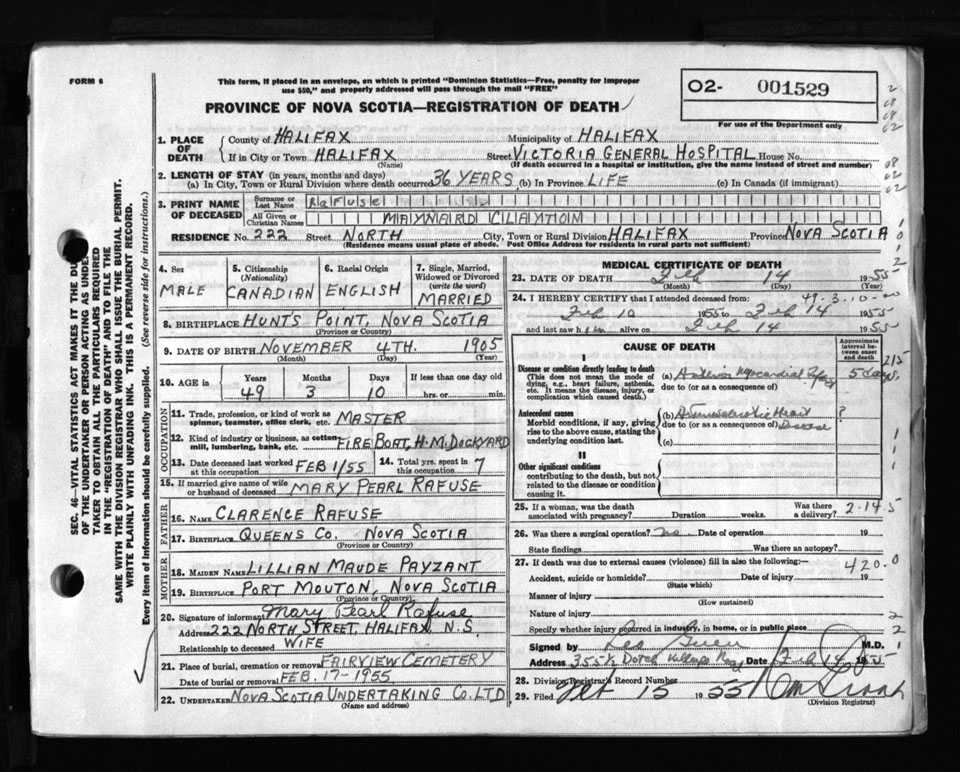 FORM 6
This form, if placed in an envelope, on which is printed "Dominion Statistics—Free, penalty for improper
use $50," and properly addressed will pass through the mail "FREE"
PROVINCE OF NOVA SCOTIA—REGISTRATION OF DEATH
O2- 001529
For use of the Department only
1. PLACE OF DEATH
County of HALIFAX Municipality of HALIFAX
If in City or Town HALIFAX Street VICTORIA GENERAL HOSPITAL House No.
(Name) (If death occurred in a hospital or institution, give the name instead of street and number)
2. LENGTH OF STAY (in years, months and days)
(a) In City, Town or Rural Division where death occurred 36 YEARS (b) In Province LIFE (c) In Canada (if immigrant)
3. PRINT NAME OF DECEASED
Surname or Last Name Rafuse
All Given or Christian Names MAYNARD CLAYTON
RESIDENCE No. 222 Street NORTH City, Town or Rural Division HALIFAX Province NOVA SCOTIA
(Residence means usual place of abode. Post Office Address for residents in rural parts not sufficient)
4. Sex MALE
5. Citizenship (Nationality) CANADIAN
6. Racial Origin ENGLISH
7. Single, Married, Widowed or Divorced (write the word) MARRIED
8. BIRTHPLACE HUNTS POINT, NOVA SCOTIA
(Province or Country)
9. DATE OF BIRTH NOVEMBER 4TH. 1905
(Month) (Day) (Year)
10. AGE in Years Months Days If less than one day old
49 3 10 hrs. or min.
OCCUPATION
11. Trade, profession, or kind of work as spinner, teamster, office clerk, etc. MASTER
12. Kind of industry or business, as cotton mill, lumbering, bank, etc. FIRE BOAT, H.M. DOCKYARD
13. Date deceased last worked at this occupation FEB 1/55
14. Total yrs. spent in this occupation 7
15. If married give name of wife or husband of deceased MARY PEARL RAFUSE
FATHER
16. NAME CLARENCE RAFUSE
17. BIRTHPLACE QUEENS CO. NOVA SCOTIA
(Province or Country)
MOTHER
18. MAIDEN NAME LILLIAN MAUDE PAYZANT
19. BIRTHPLACE PORT MOUTON, NOVA SCOTIA
(Province or Country)
20. Signature of informant Mary Pearl Rafuse
Address 222 NORTH STREET, HALIFAX, N.S.
Relationship to deceased WIFE
21. Place of burial, cremation or removal FAIRVIEW CEMETERY
Date of burial or removal FEB. 17-1955
22. UNDERTAKER NOVA SCOTIA UNDERTAKING CO. LTD
(Name and address)
MEDICAL CERTIFICATE OF DEATH
23. DATE OF DEATH Feb 14 1955
(Month) (Day)
49-3-10-00
24. I HEREBY CERTIFY that I attended deceased from:
Feb 10 1955 to Feb 14 1955
and last saw him alive on Feb 14 1955
CAUSE OF DEATH
Approximate interval between onset and death
I
Disease or condition directly leading to death
(This does not mean the mode of dying, e.g., heart failure, asthenia, etc. It means the disease, injury, or complication which caused death.)
(a) Anterior Myocardial Infarct 5 days
due to (or as a consequence of)
Antecedent causes
Morbid conditions, if any, giving rise to the above cause, stating the underlying condition last.
(b) Arteriosclerotic Heart Disease ?
due to (or as a consequence of)
(c)
II
Other significant conditions
contributing to the death, but not related to the disease or condition causing it.
25. If a woman, was the death associated with pregnancy? Duration weeks. Was there a delivery?
2-14-5
26. Was there a surgical operation? no Date of operation 19
State findings Was there an autopsy?
27. If death was due to external causes (violence) fill in also the following:—
420.0
Accident, suicide or homicide? Date of injury 19
(State which)
Manner of injury
(How sustained)
Nature of injury
Specify whether injury occurred in industry, in home, or in public place
Signed by M.D.
Address 355½ Date Feb 14 1955
28. Division Registrar's Record Number
29. Filed Feb 15 1955
(Division Registrar)
SEC. 46—VITAL STATISTICS ACT MAKES IT THE DUTY
OF THE UNDERTAKER OR PERSON ACTING AS UNDER-
TAKER TO OBTAIN ALL THE PARTICULARS REQUIRED
IN THE "REGISTRATION OF DEATH" AND TO FILE THE
SAME WITH THE DIVISION REGISTRAR WHO SHALL ISSUE THE BURIAL PERMIT.
WRITE PLAINLY WITH UNFADING INK. THIS IS A PERMANENT RECORD.
Every item of information should be carefully supplied. (See reverse side for instructions.)